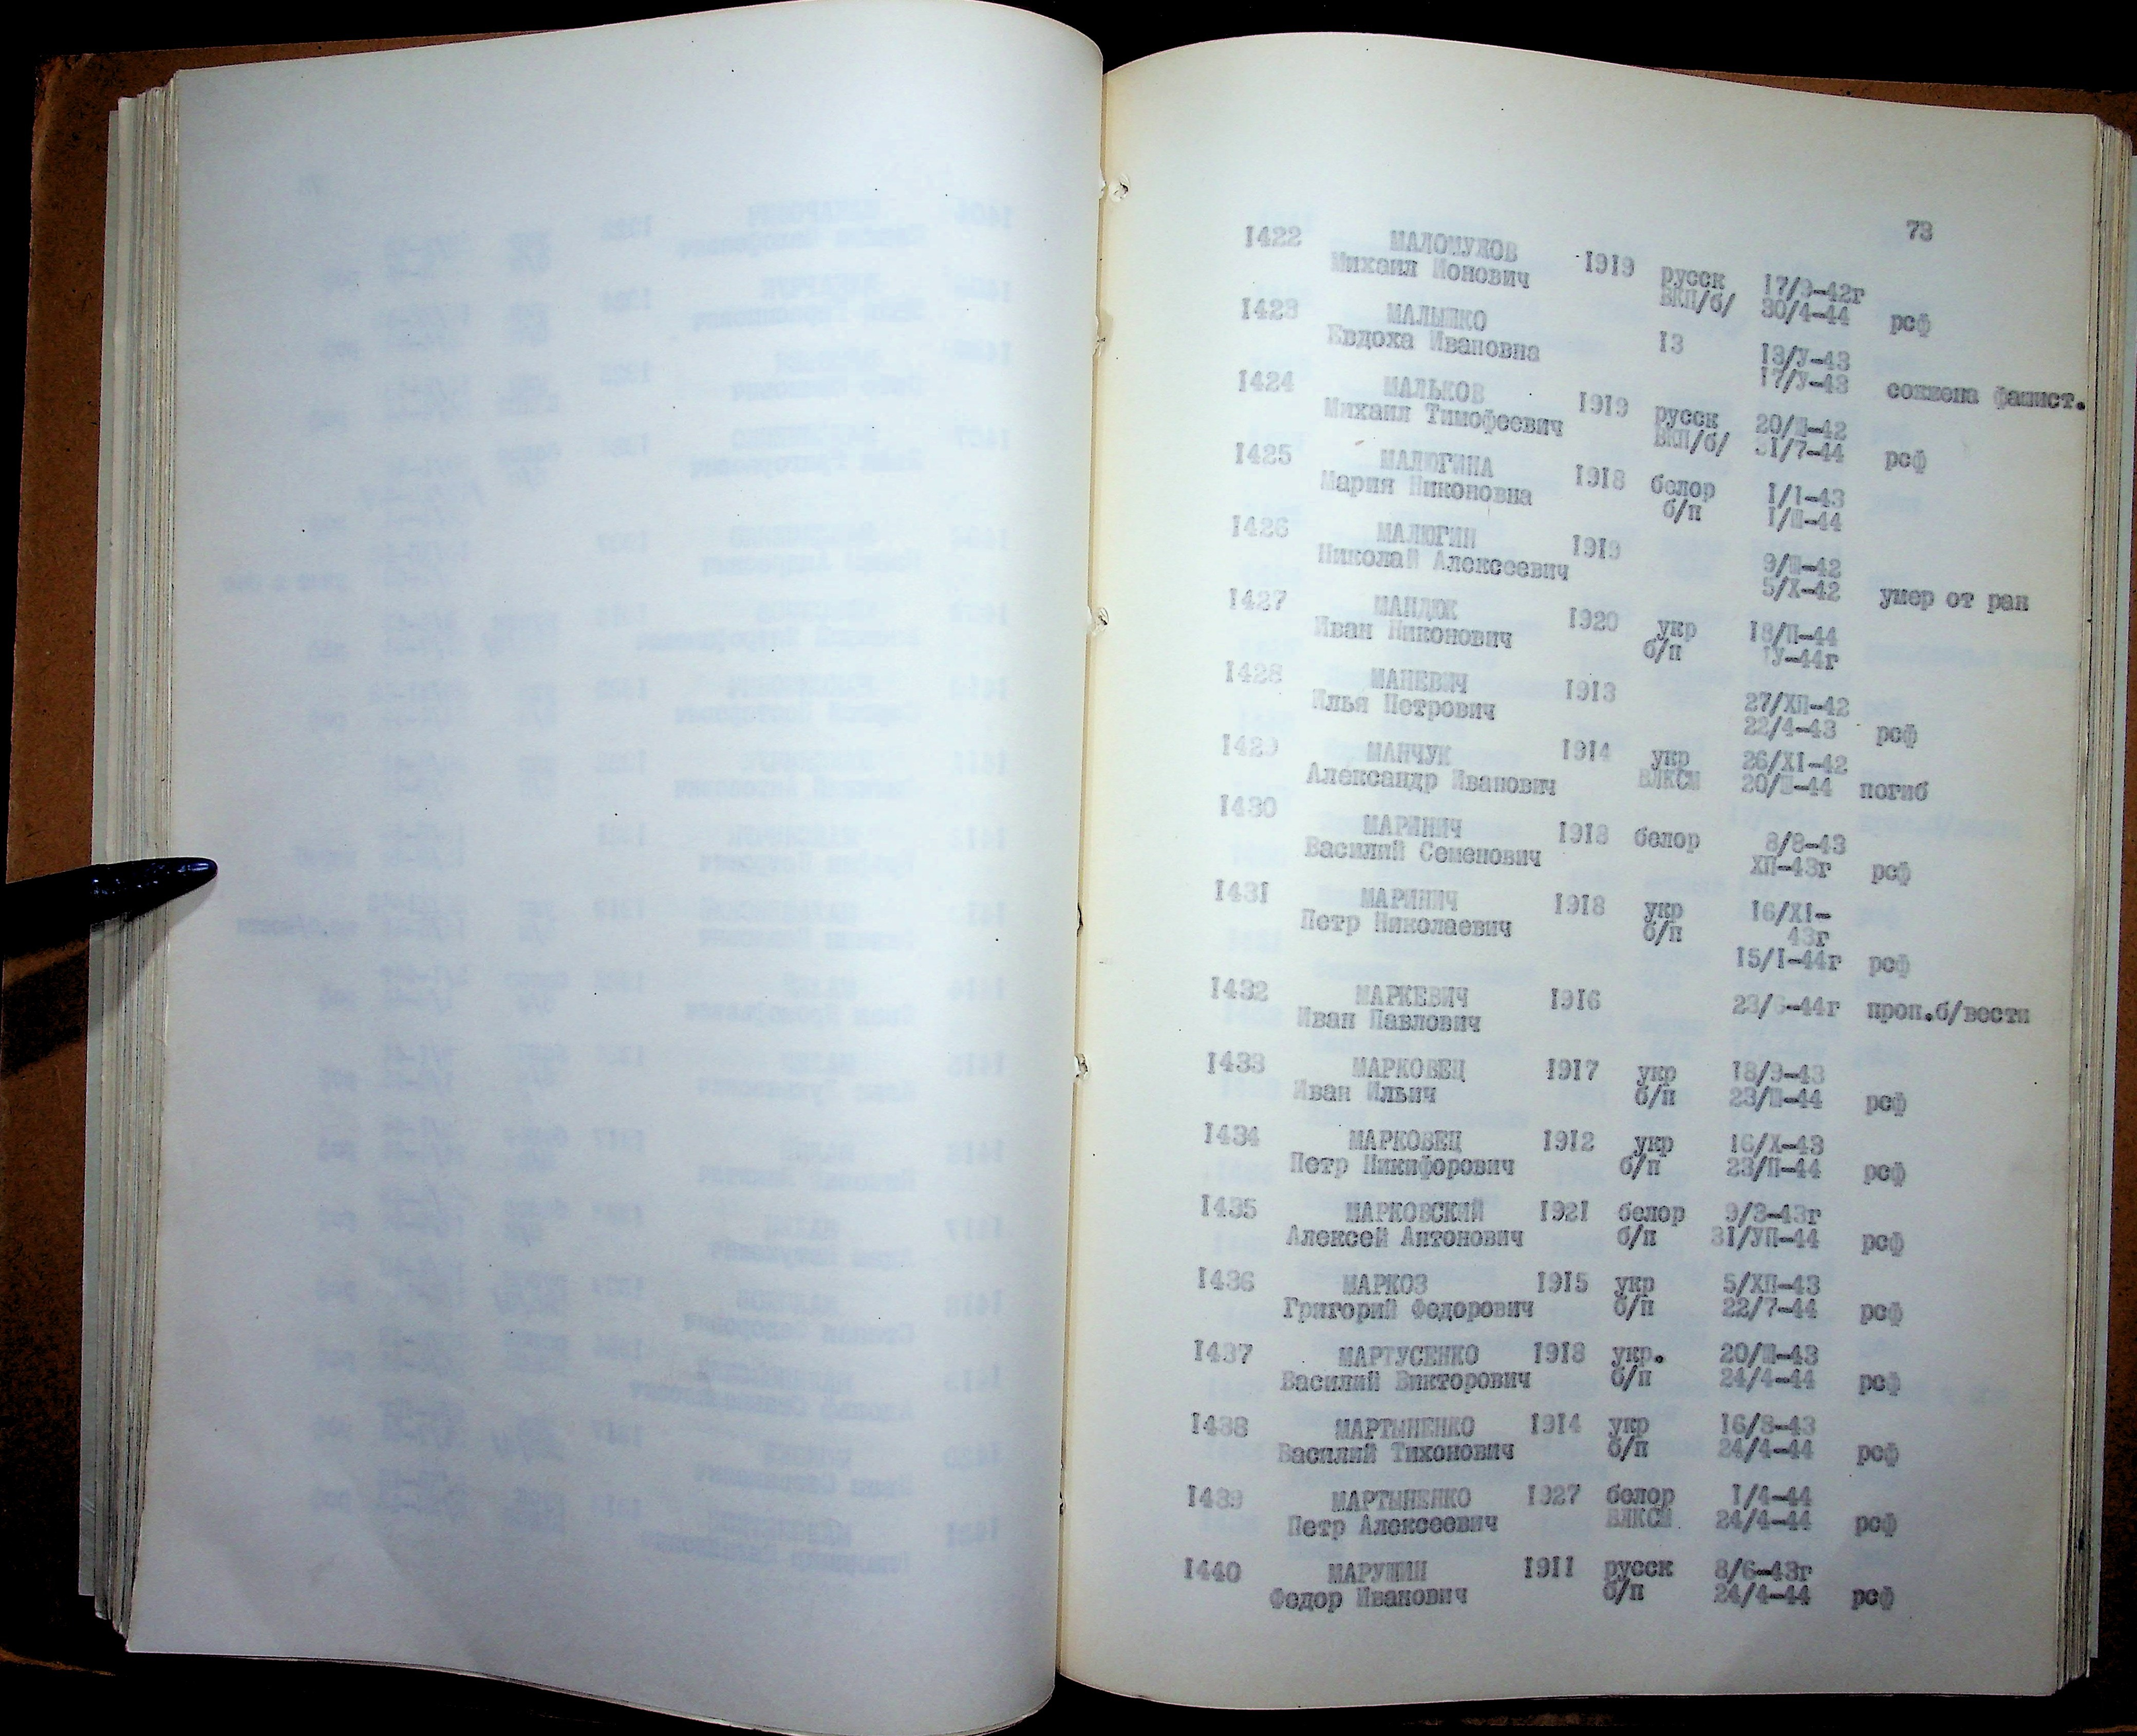 73
1422 МАЛОМУЖОВ 1919 русск 17/9-42г
Михаил Ионович ВКП/б/ 30/4-44 рсф
1423 МАЛЫШКО 13 13/У-43
Евдоха Ивановна 17/У-43 сожжена фашист.
1424 МАЛЬКОВ 1919 русск 20/Ш-42
Михаил Тимофеевич ВКП/б/ 31/7-44 рсф
1425 МАЛЮГИНА 1918 белор 1/1-43
Мария Никоновна б/п 1/Ш-44
1426 МАЛЮГИН 1919 9/Ш-42
Николай Алексеевич 5/Х-42 умер от ран
1427 МАНДЮК 1920 укр 18/П-44
Иван Никонович б/п 1У-44г
1428 МАНЕВИЧ 1913 27/ХП-42
Илья Петрович 22/4-43 рсф
1429 МАНЧУК 1914 укр 26/Х1-42
Александр Иванович ВЛКСМ 20/Ш-44 погиб
1430 МАРИНИЧ 1918 белор 8/8-43
Василий Семенович ХП-43г рсф
1431 МАРИНИЧ 1918 укр 16/Х1-
Петр Николаевич б/п 43г
15/1-44г рсф
1432 МАРКЕВИЧ 1916 23/6-44г проп.б/вести
Иван Павлович
1433 МАРКОВЕЦ 1917 укр 18/9-43
Иван Ильич б/п 23/П-44 рсф
1434 МАРКОВЕЦ 1912 укр 16/Х-43
Петр Никифорович б/п 23/П-44 рсф
1435 МАРКОВСКИЙ 1921 белор 9/3-43г
Алексей Антонович б/п 31/УП-44 рсф
1436 МАРКОЗ 1915 укр 5/ХП-43
Григорий Федорович б/п 22/7-44 рсф
1437 МАРТУСЕНКО 1918 укр. 20/Ш-43
Василий Викторович б/п 24/4-44 рсф
1438 МАРТЫНЕНКО 1914 укр 16/8-43
Василий Тихонович б/п 24/4-44 рсф
1439 МАРТЫНЕНКО 1927 белор 1/4-44
Петр Алексеевич ВЛКСМ 24/4-44 рсф
1440 МАРУШИН 1911 русск 8/6-43г
Федор Иванович б/п 24/4-44 рсф